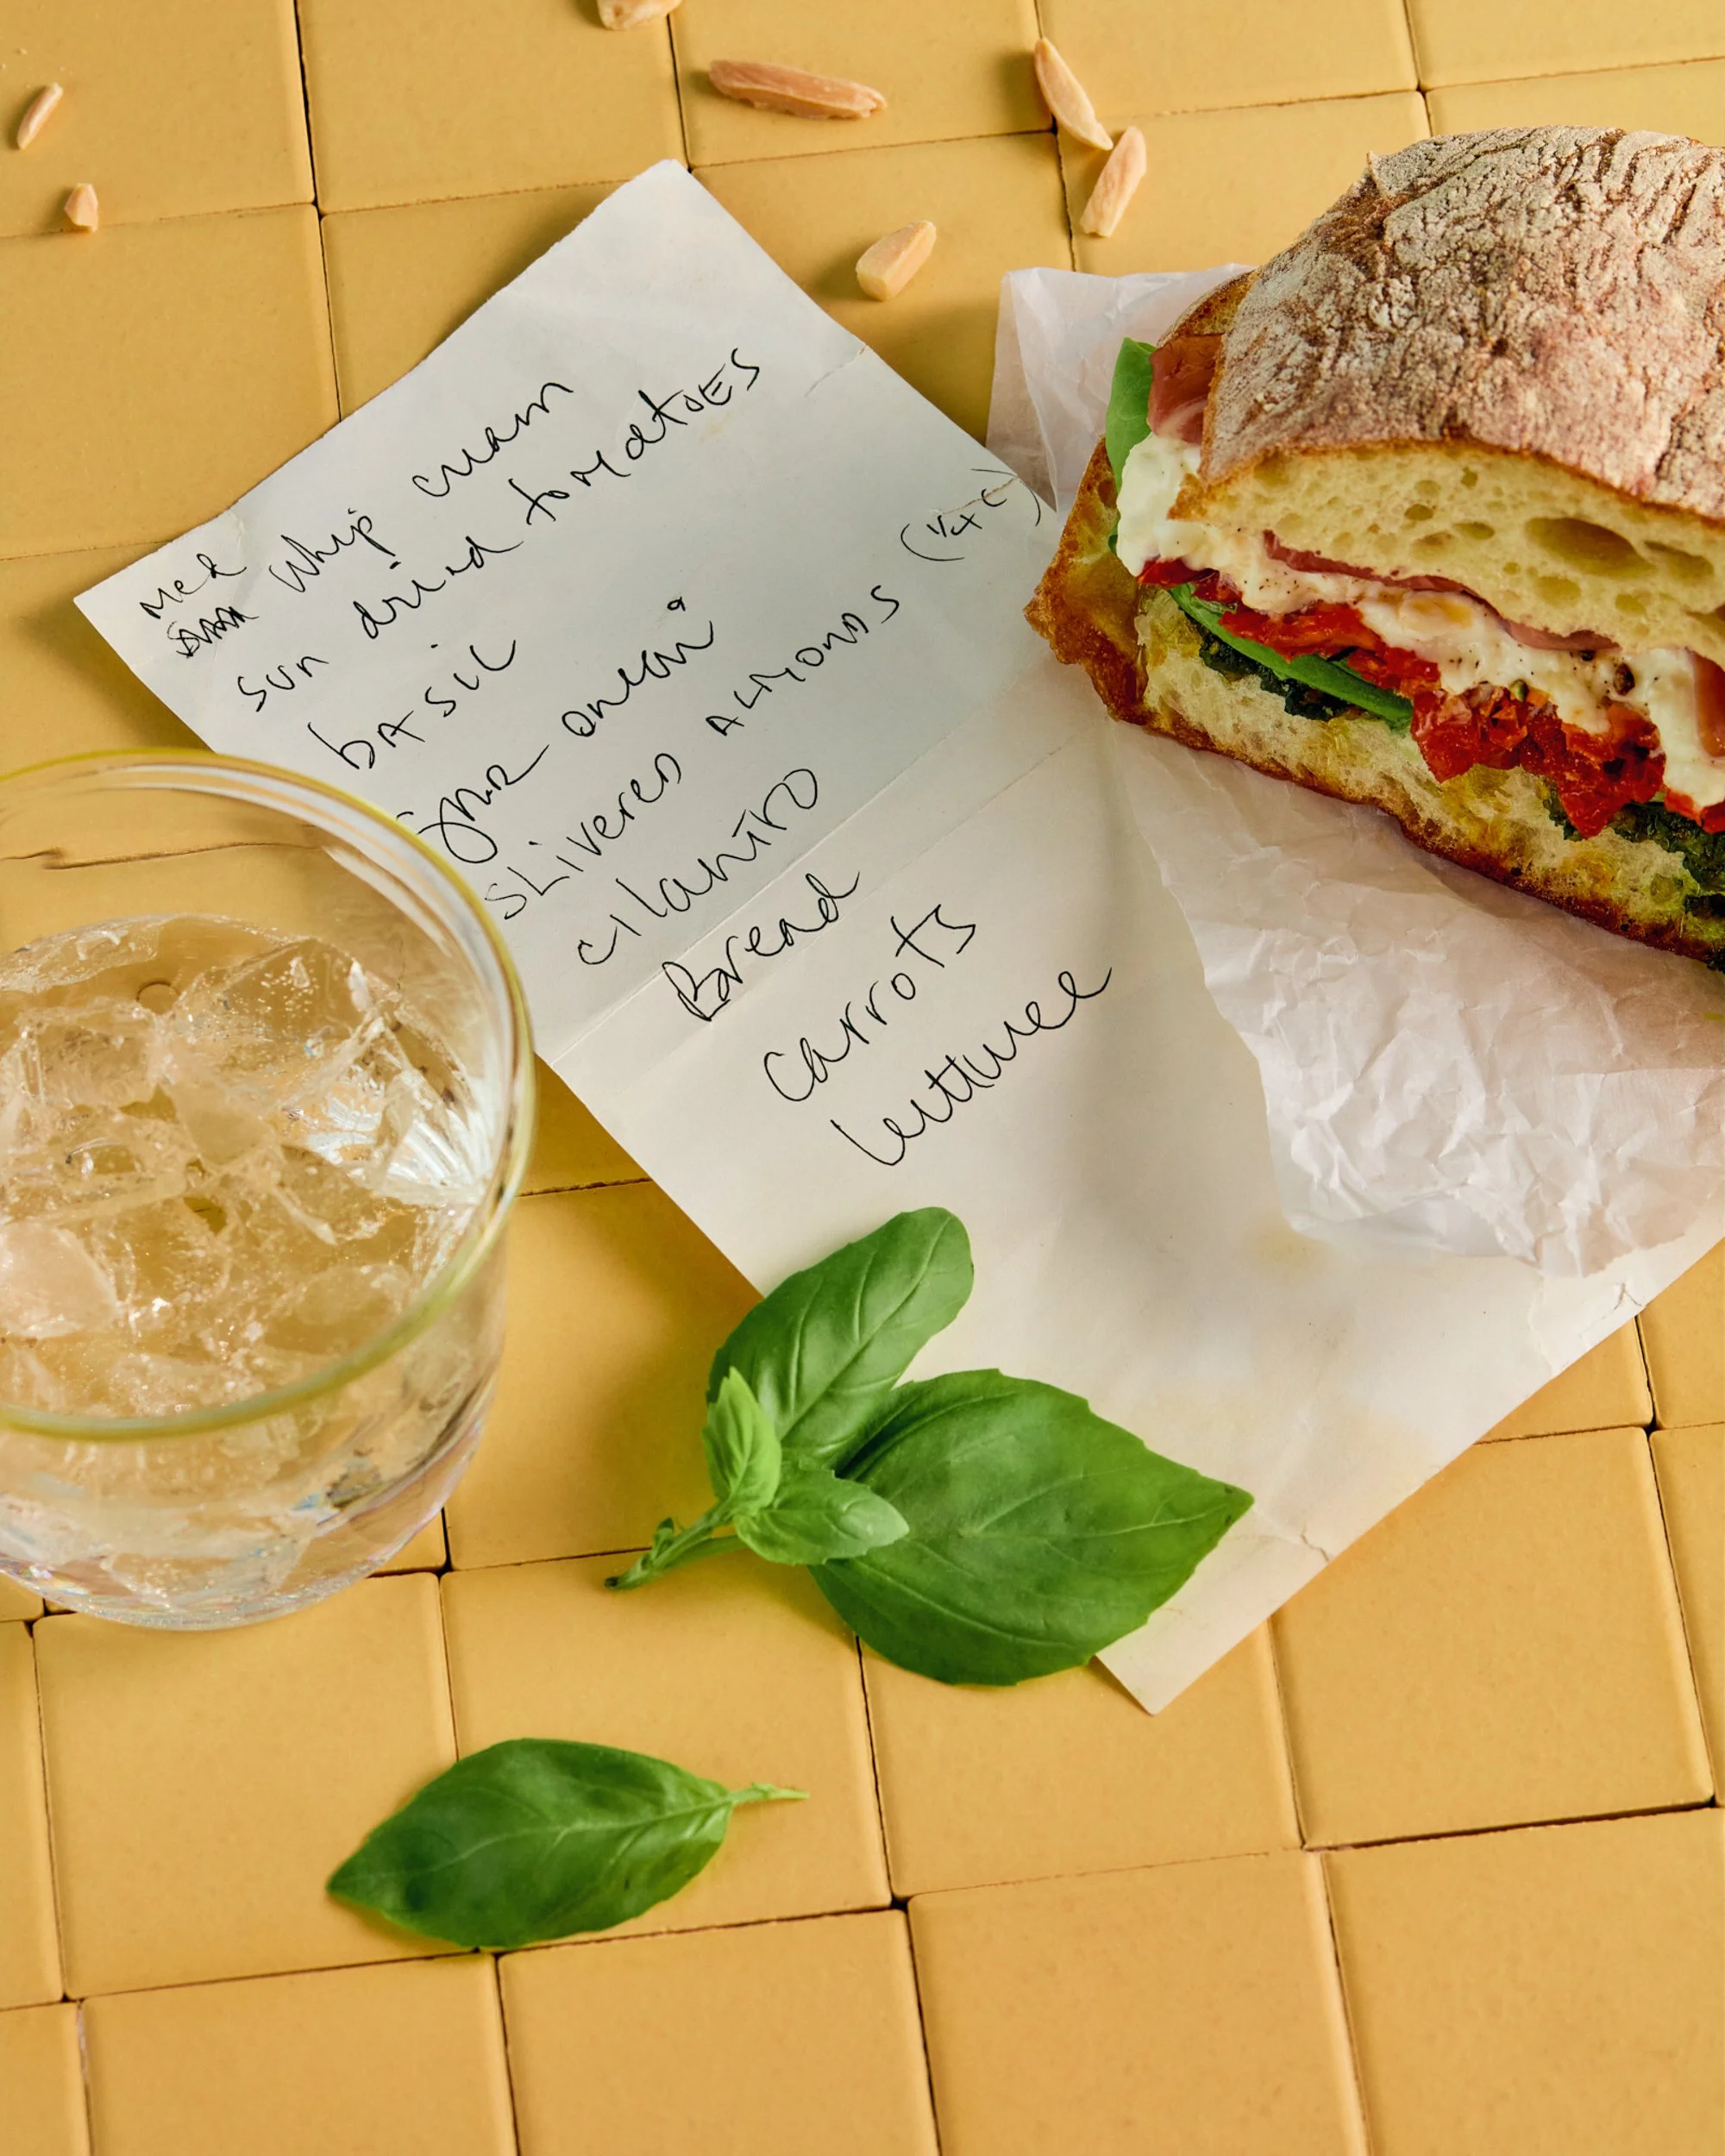 Med Whip cream
sun dried tomatoES
bASiL
onion
SLivereD ALMONDS (1/4 C)
cilantro
Bread
carrots
lettuce